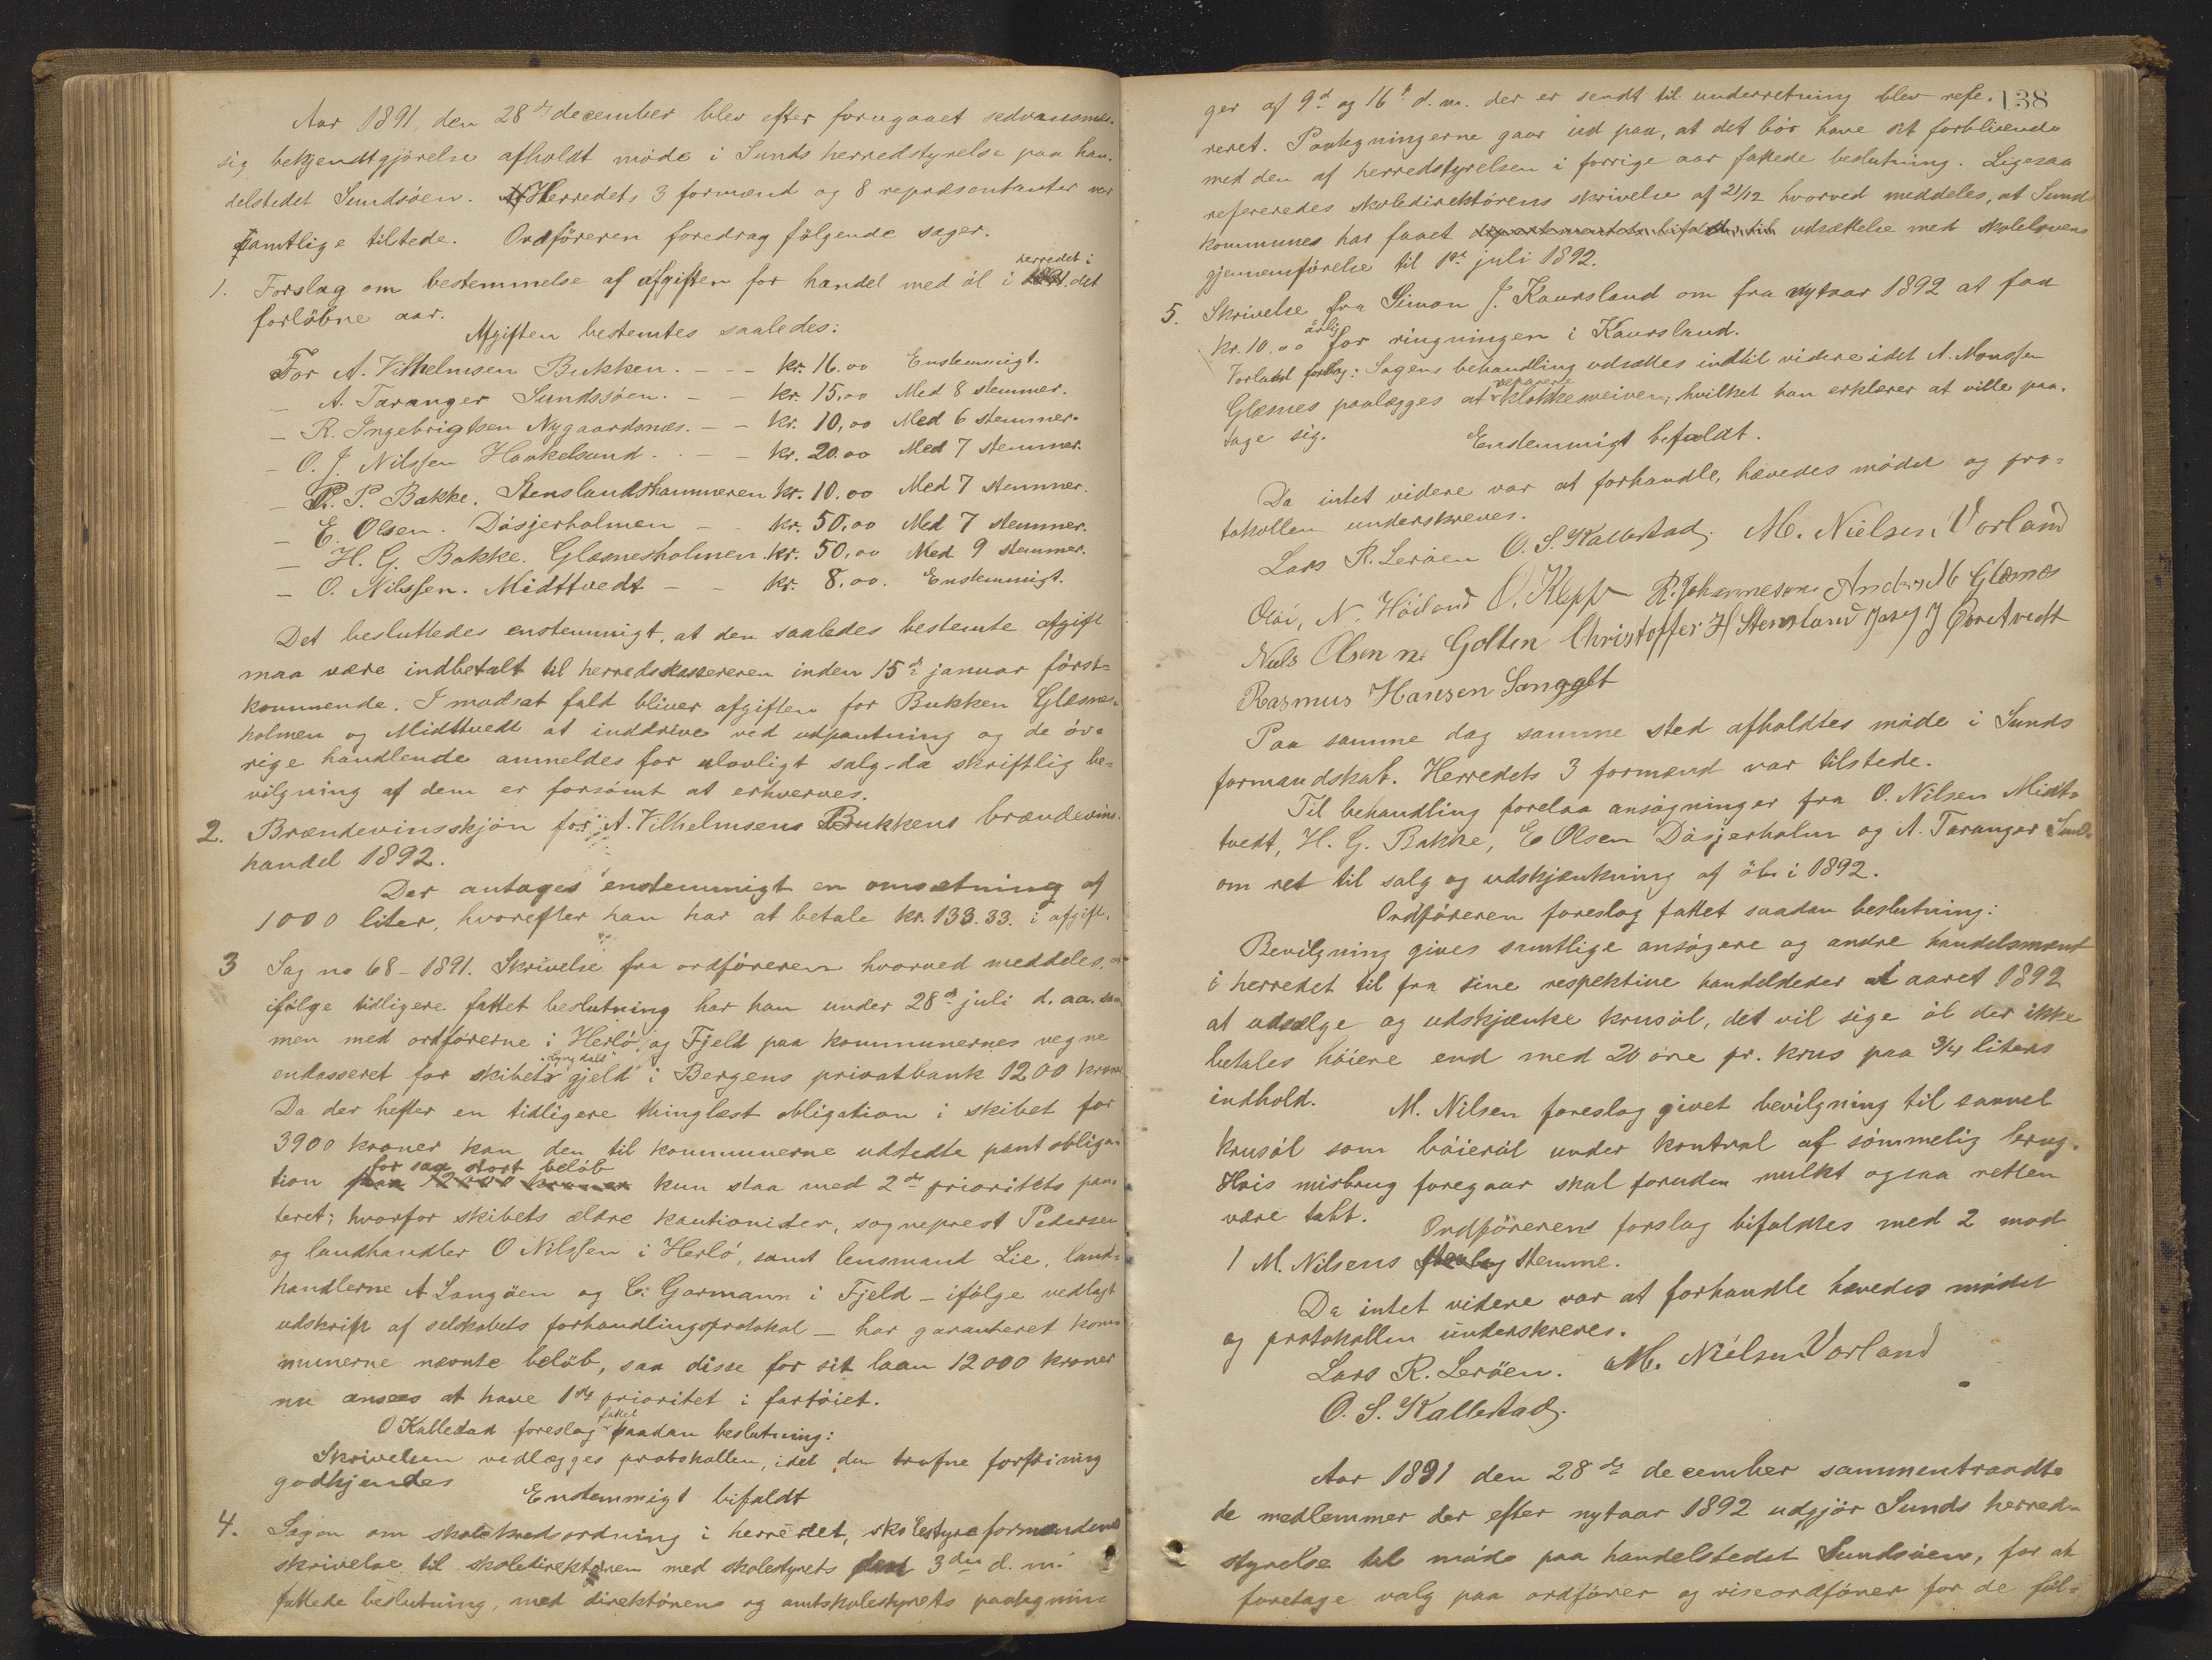 Aar 1891, den 28de december blev efter forugaaet sedvansmes-
sig bekjendtgjörelse afholdt möde i Sunds herredstyrelse paa han-
delstedet Sundsöen. Herredets 3 formænd og 8 repræsentanter var
samtlige tilstede. Ordföreren foredrag fölgende sager.
herredet i
1. Forslag om bestemmelse af afgiften for handel med öl i 1891. det
forlöbne aar.
Afgiften bestemtes saaledes:
For A. Vilhelmsen Bukken. - - - kr. 16.00 Enstemmigt.
- A. Taranger Sundssöen. - - kr. 15,00 Med 8 stemmer.
- R. Ingebrigtsen Nygaardsnæs. - - kr. 10,00 Med 6 stemmer.
- O. J. Nilssen Haakelsund. . - - kr. 20.00 Med 7 stemmer.
- P. P. Bakke. Stenslandskammeren kr. 10.00 Med 7 stemmer.
- E. Olsen. Däsjerholmen - - kr. 50,00 Med 7 stemmer.
- H. G. Bakke. Glæsnesholmen. kr. 50,00 Med 9 stemmer.
- O. Nilssen. Midttvedt - - kr. 8,00. Enstemmigt.
Det besluttedes enstemmigt, at den saaledes bestemte afgift
maa være indbetalt til herredskassereren inden 15de januar först-
kommende. I modsat fald bliver afgiften for Bukken Glæsnes-
holmen og Midttvedt at inddrive ved udpantning og de öv-
rige handlende anmeldes for ulovligt salg da skriftlig be-
vilgning af dem er forsömt at erhverves.
2. Brændevinsskjön for A. Vilhelmsens Bukkens brændevins-
handel 1892.
Der antages enstemmigt en omsætning af
1000 liter, hvorefter han har at betale kr. 133.33. i afgift.
3 Sag no 68-1891. Skrivelse fra ordföreren hvorved meddeles, at
ifölge tidligere fattet beslutning har han under 28de juli d. aa. sam
men med ordförerne i Herlö og Fjeld paa kommunernes vegne
"Lyngdals"
endosseret for skibets gjeld i Bergens privatbank 1200 kroner
Da der hefter en tidligere thinglæst obligation i skibet for
3900 kroner kan den til kommunerne udstedte pantobliga-
for saa stort belöb
tion paa 12000 kroner kun staa med 2den prioritets pan-
teret; hvorfor skibets ældre kautionister, sogneprest Pedersen
og landhandler O Nilssen i Herlö, samt lensmand Lie, land-
handlerne A Langöen og C. Garmann i Fjeld - ifölge vedlagt
udskrift af selskabets forhandlingsprotokol - har garanteret kom-
munerne nævnte belöb, saa disse for sit laan 12000 kroner
nu ansees at have 1ste prioritet i fartöiet.
fattet
O Kallestad foreslog saadan beslutning:
Skrivelsen vedlægges protokollen, idet den trufne forföining
godkjendes
Enstemmigt bifaldt
4. Sagen om skolekredsordning i herredet, skolestyreformandens
skrivelse til skoledirektören med skolestyrets 3die d. m.
fattede beslutning, med direktörens og amtskolestyrets paategnin-
138
ger af 9d og 16t d. m. der er sendt til underretning blev refe-
reret. Paategningerne gaar ud paa, at det bör have sit forblivende
med den af herredstyrelsen i forrige aar fattede beslutning. Ligesaa
refereredes skoledirektörens skrivelse af 21/12 hvorved meddeles, at Sunds
kommunes har faaet departementets bifald til udsættelse med skolelovens
gjennemförelse til 1ste juli 1892.
5. Skrivelse fra Simon J. Kaursland om fra nytaar 1892 at faa
årlig
kr. 10.00 for ringningen i Kaursland.
Vorland forslog: Sagens behandling udsættes indtil videre idet A. Monssen
reparere
Glæsnes paalægges at klokkesveiven, hvilket han erklærer at ville paa-
tage sig.
Enstemmigt bifaldt.
Da intet videre var at forhandle, hævedes mödet og pro-
tokollen underskreves.
Lars R. Leröen O. S. Kallestad. M. Nielsen Vorland
Olai, N. Höiland O. Klepp R. Johannesen Anders M Glæsnes
Niels Olsen n. Golten Christoffer H Stensland J Övretvedt
Rasmus Hansen Sangolt
Paa samme dag samme sted afholdtes möde i Sunds
formandskab. Herredets 3 formænd var tilstede.
Til behandling forelaa ansögninger fra O. Nilsen Midt-
tvedt, H. G. Bakke, E Olsen Däsjerholm og A. Taranger Sunds
om ret til salg og udskjænkning af öl i 1892.
Ordföreren foreslog fattet saadan beslutning:
Bevilgning gives samtlige ansögere og andre handelsmænd
i herredet til fra sine respektive handelsteder i aaret 1892
at udsælge og udskjænke krusöl, det vil sige öl der ikke
betales höiere end med 20 öre pr. krus paa 3/4 liters
indhold.
M. Nilsen foreslog givet bevilgning til saavel
krusöl som baieröl under kontrol af sömmelig brug.
Hvis misbrug foregaar skal foruden mulkt ogsaa retten
være tabt.
Ordförerens forslag bifaldtes med 2 mod
1 M. Nilsens stemme.
Da intet videre var at forhandle hævedes mödet
og protokollen underskreves.
Lars R. Leröen. M. Nielsen Vorland
O. S. Kallestad.
Aar 1891 den 28de december sammentraadte
de medlemmer der efter nytaar 1892 udgjör Sunds herreds-
styrelse til möde paa handelstedet Sundsöen, for at
foretage valg paa ordförer og viseordförer for de föl-